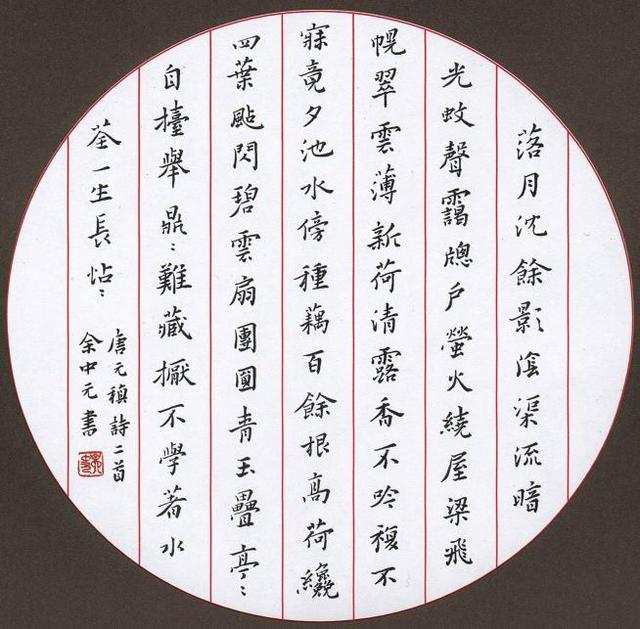 落月沈餘影陰渠流暗
光蚊聲靄牕戶螢火繞屋梁飛
幌翠雲薄新荷清露香不吟複不
寐竟夕池水傍種藕百餘根高荷纔
四葉颭閃碧雲扇團圓青玉疊亭〻
自擡舉鼎〻難藏擫不學著水
荃一生長怗〻
唐元稹詩二首
余中元書